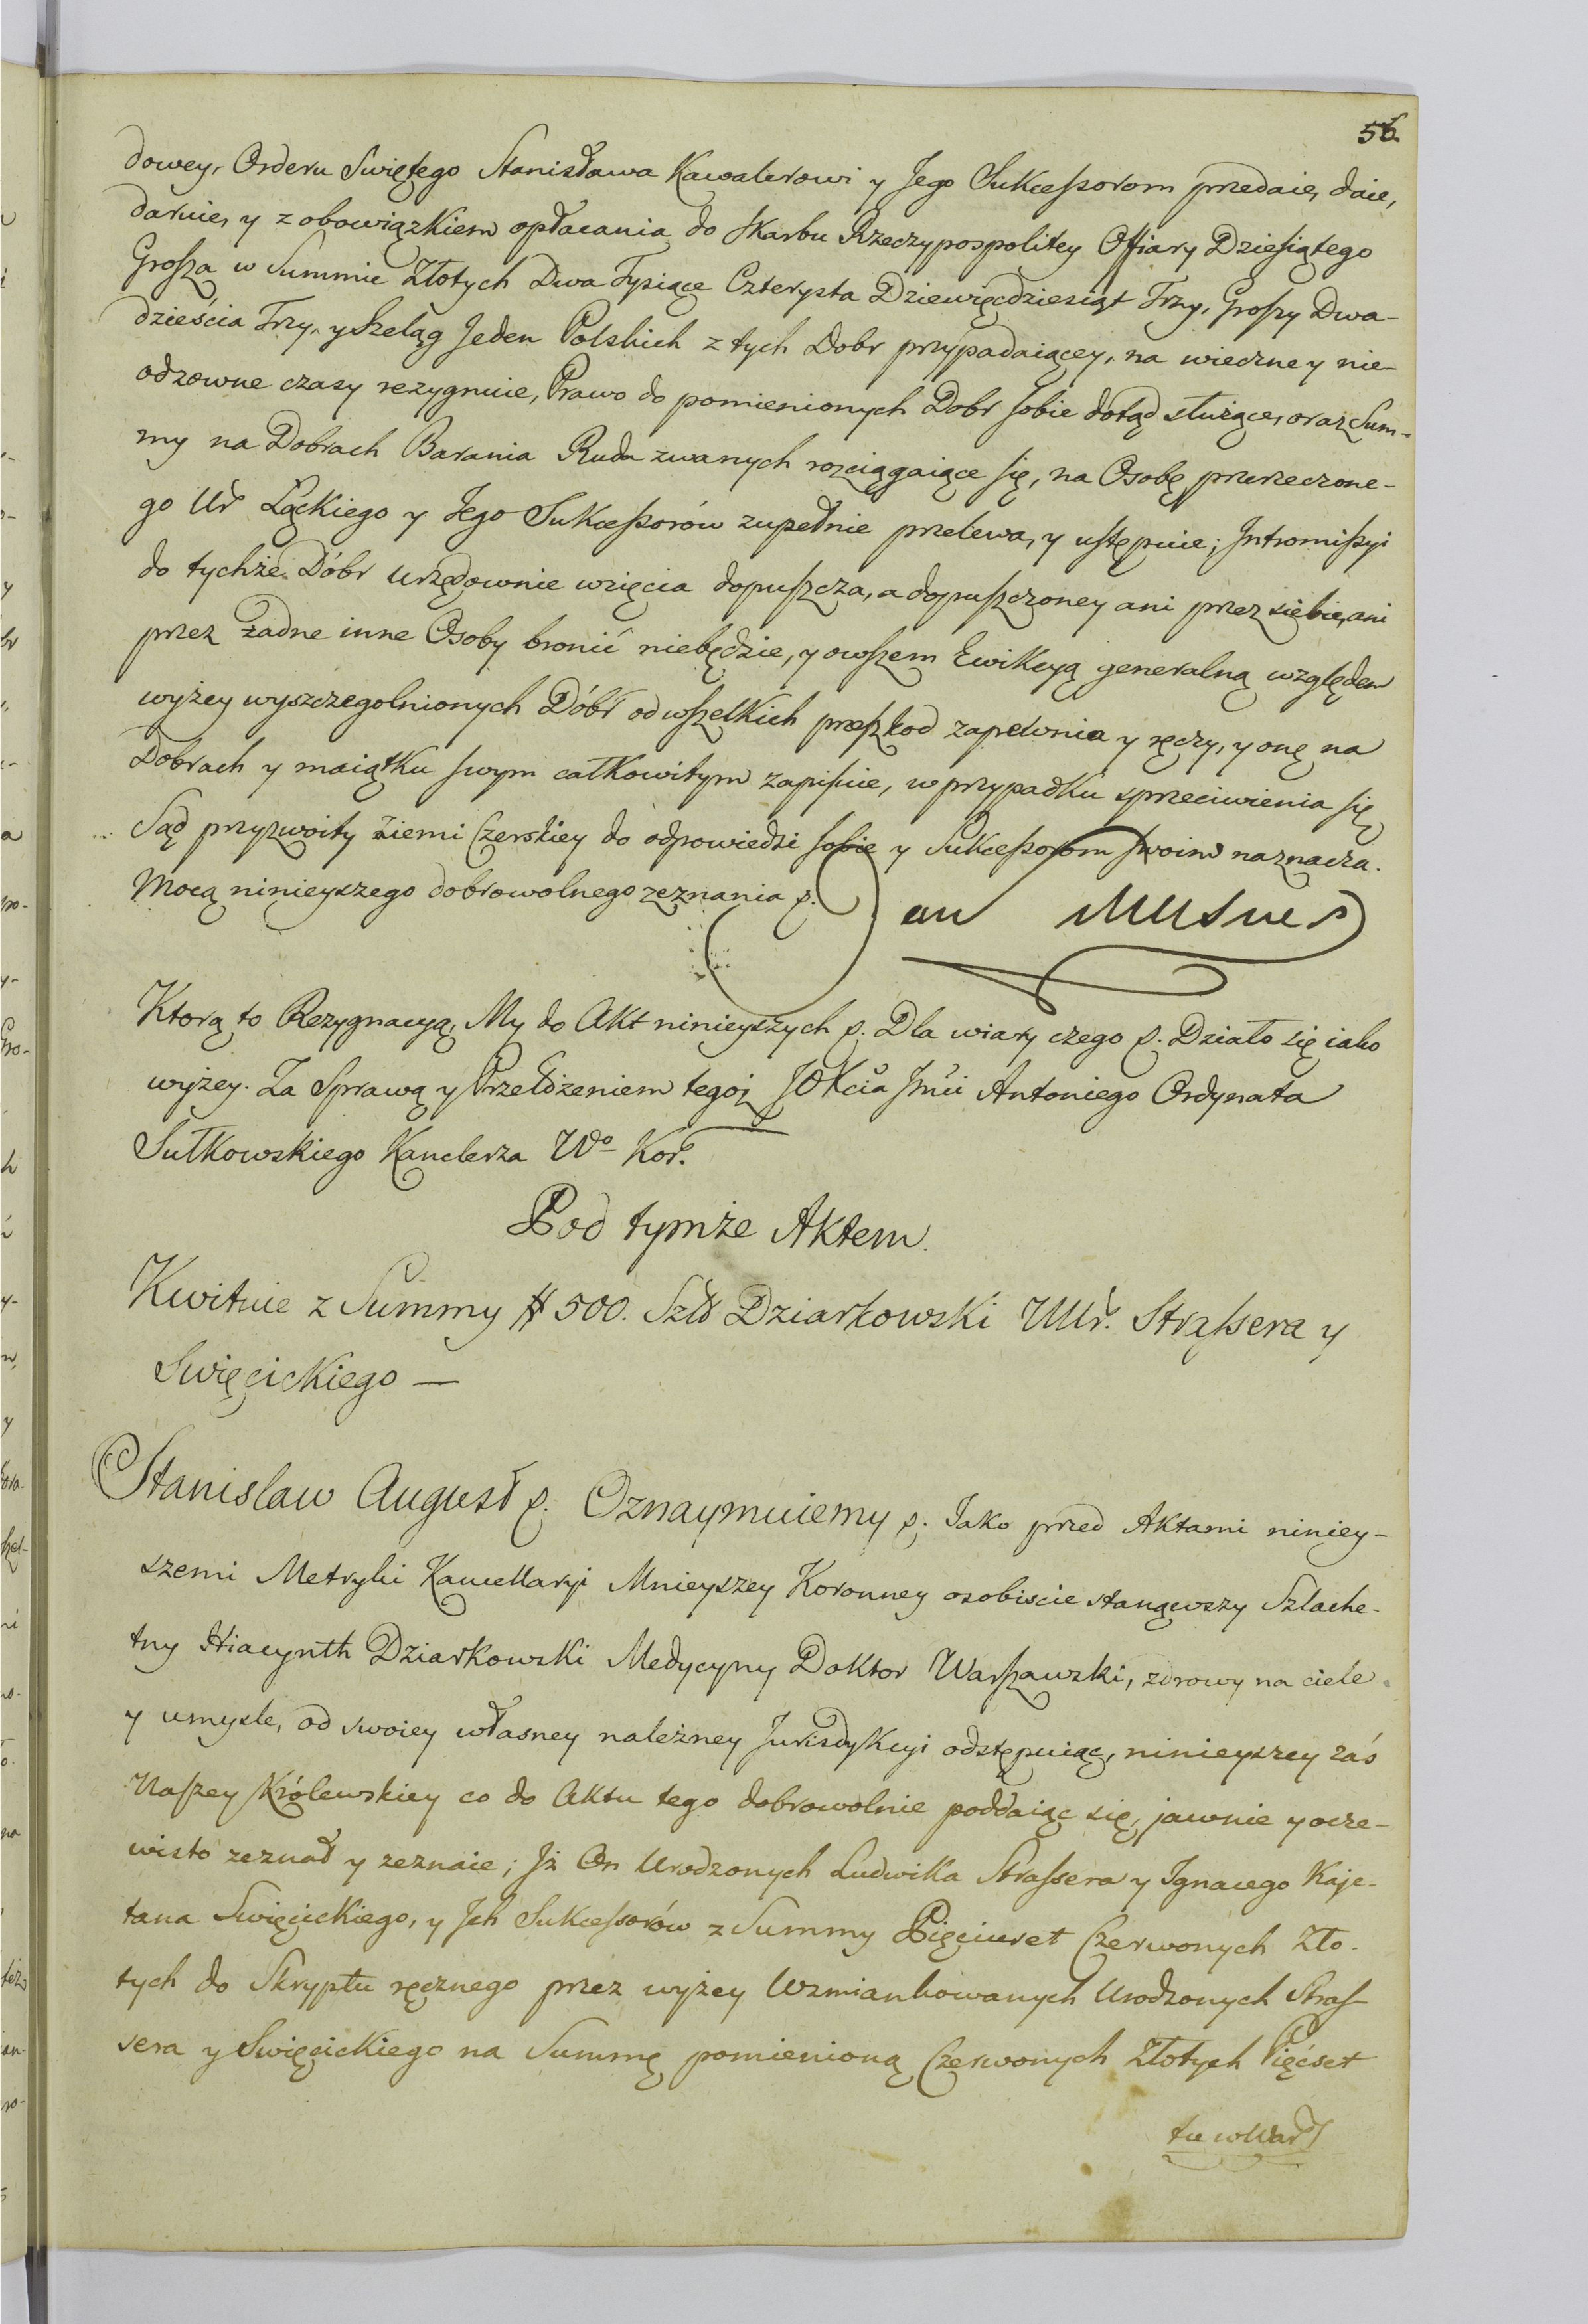 56.
dowey, Orderu Swiętego Stanisława Kawalerowi y Jego Sukceſsorom przedaie, daie,
daruie, y z obowiązkiem opłacania do Skarbu Rzeczypospolitey Offiary Dzieſiątego
Groſza w Summie Złotych Dwa Tysiące Czterysta Dziewięcdziesiąt Trzy, Groſzy Dwa-
dzieścia Trzy, y Szeląg Jeden Polskich z tych Dobr przypadaiącey, na wieczne y nie-
odzowne czasy rezygnuie, Prawo do pomienionych Dobr ſobie dotąd służące, oraz Sum-
my na Dobrach Barania Ruda zwanych rozciągaiące ſię, na Osobę przerzeczone-
go Ur Łąckiego y Jego Sukceſsorów zupełnie przelewa, y uſtępuie; Intromiſsyi
do tychże Dóbr urzędownie wzięcia dopuſzcza, a dopuſzczoney ani przez siebie, ani
przez żadne inne Osoby bronić niebędzie, y owſzem Ewikcyą generalną względem
wyżey wyszczegolnionych Dóbr od wſzelkich przeſzkod zapewnia y ręczy, y onę na
Dobrach y maiątku ſwym całkowitym zapiſuie, w przypadku sprzeciwienia ſię
Sąd przyzwoity Ziemi Czerskiey do odpowiedzi ſobie y Sukceſsorom ſwoim naznacza.
Mocą ninieyszego dobrowolnego zeznania p.
Jan
Ktorą to Rezygnacyą, My do Akt ninieyszych p. Dla wiary czego p. Działo się iako
wyżey. Za Sprawą y Przełożeniem tegoż JO Kcia Jmci Antoniego Ordynata
Sułkowskiego Kanclerza Wo Kor.
Pod tymże Aktem.
Kwituie z Summy # 500. Szlł Dziarkowski UUr. Straſsera y
Swięcickiego —
Stanislaw August p. Oznaymuiemy p. Jako przed Aktami niniey-
szemi Metryki Kancellaryi Mnieyszey Koronney osobiscie stanąwszy Szlache-
tny Hiacynth Dziarkowski Medycyny Doktor Warſzawski, zdrowy na ciele
y umysle, od swoiey własney należney Jurisdykcyi odstępuiąc, ninieyszey zaś
Naſzey Królewskiey co do Aktu tego dobrowolnie poddaiąc się, jawnie y ocze-
wisto zeznał y zeznaie; Jż On Urodzonych Ludwika Straſsera y Ignacego Kaje-
tana Swięcickiego, y Jch Sukceſsorów z Summy Pięciuset Czerwonych Zło-
tych do Skryptu ręcznego przez wyżey Wzmiankowanych Urodzonych Straſ-
sera y Swięcickiego na Summę pomienioną Czerwonych Złotych Pięćset
tu w War